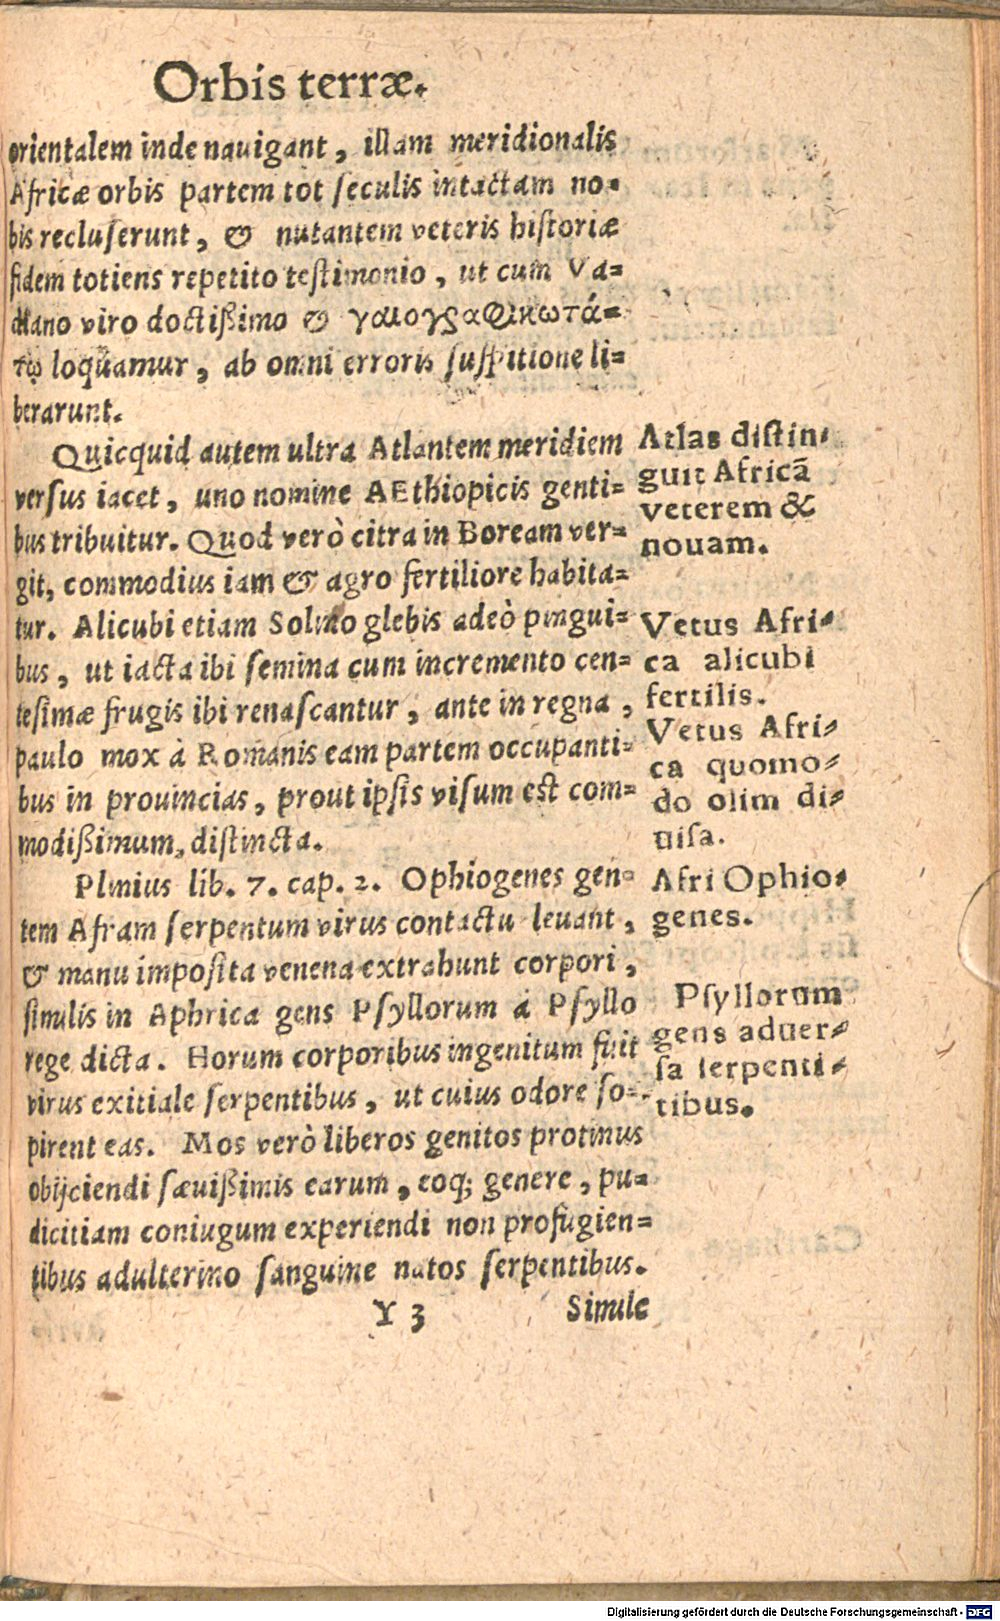 Orbis terræ.
orientalem inde nauigant, illam meridionalis
Africæ orbis partem tot seculis intactam no-
bis recluserunt, & nutantem veteris historiæ
fidem totiens repetito testimonio, ut cum Va-
diano viro doctißimo & γαιογραφικωτά-
τῳ loquamur, ab omni erroris suspitione li-
berarunt.
Quicquid autem ultra Atlantem meridiem
versus iacet, uno nomine AEthiopicis genti-
bus tribuitur. Quod verò citra in Boream ver-
git, commodius iam & agro fertiliore habita-
tur. Alicubi etiam Solino glebis adeò pingui-
bus, ut iacta ibi semina cum incremento cen-
tesimæ frugis ibi renascantur, ante in regna,
paulo mox à Romanis eam partem occupanti-
bus in prouincias, prout ipsis visum est com-
modißimum, distincta.
Plinius lib. 7. cap. 2. Ophiogenes gen-
tem Afram serpentum virus contactu leuant,
& manu imposita venena extrahunt corpori,
similis in Aphrica gens Psyllorum à Psyllo
rege dicta. Horum corporibus ingenitum fuit
virus exitiale serpentibus, ut cuius odore so-
pirent eas. Mos verò liberos genitos protinus
obijciendi sæuißimis earum, eoq; genere, pu-
dicitiam coniugum experiendi non profugien-
tibus adulterino sanguine natos serpentibus.
Y 3 Simile
Atlas distin-
guit Africã
veterem &
nouam.
Vetus Afri-
ca alicubi
fertilis.
Vetus Afri-
ca quomo-
do olim di-
uisa.
Afri Ophio-
genes.
Psyllorum
gens aduer-
sa serpenti-
tibus.
Digitalisierung gefördert durch die Deutsche Forschungsgemeinschaft - DFG